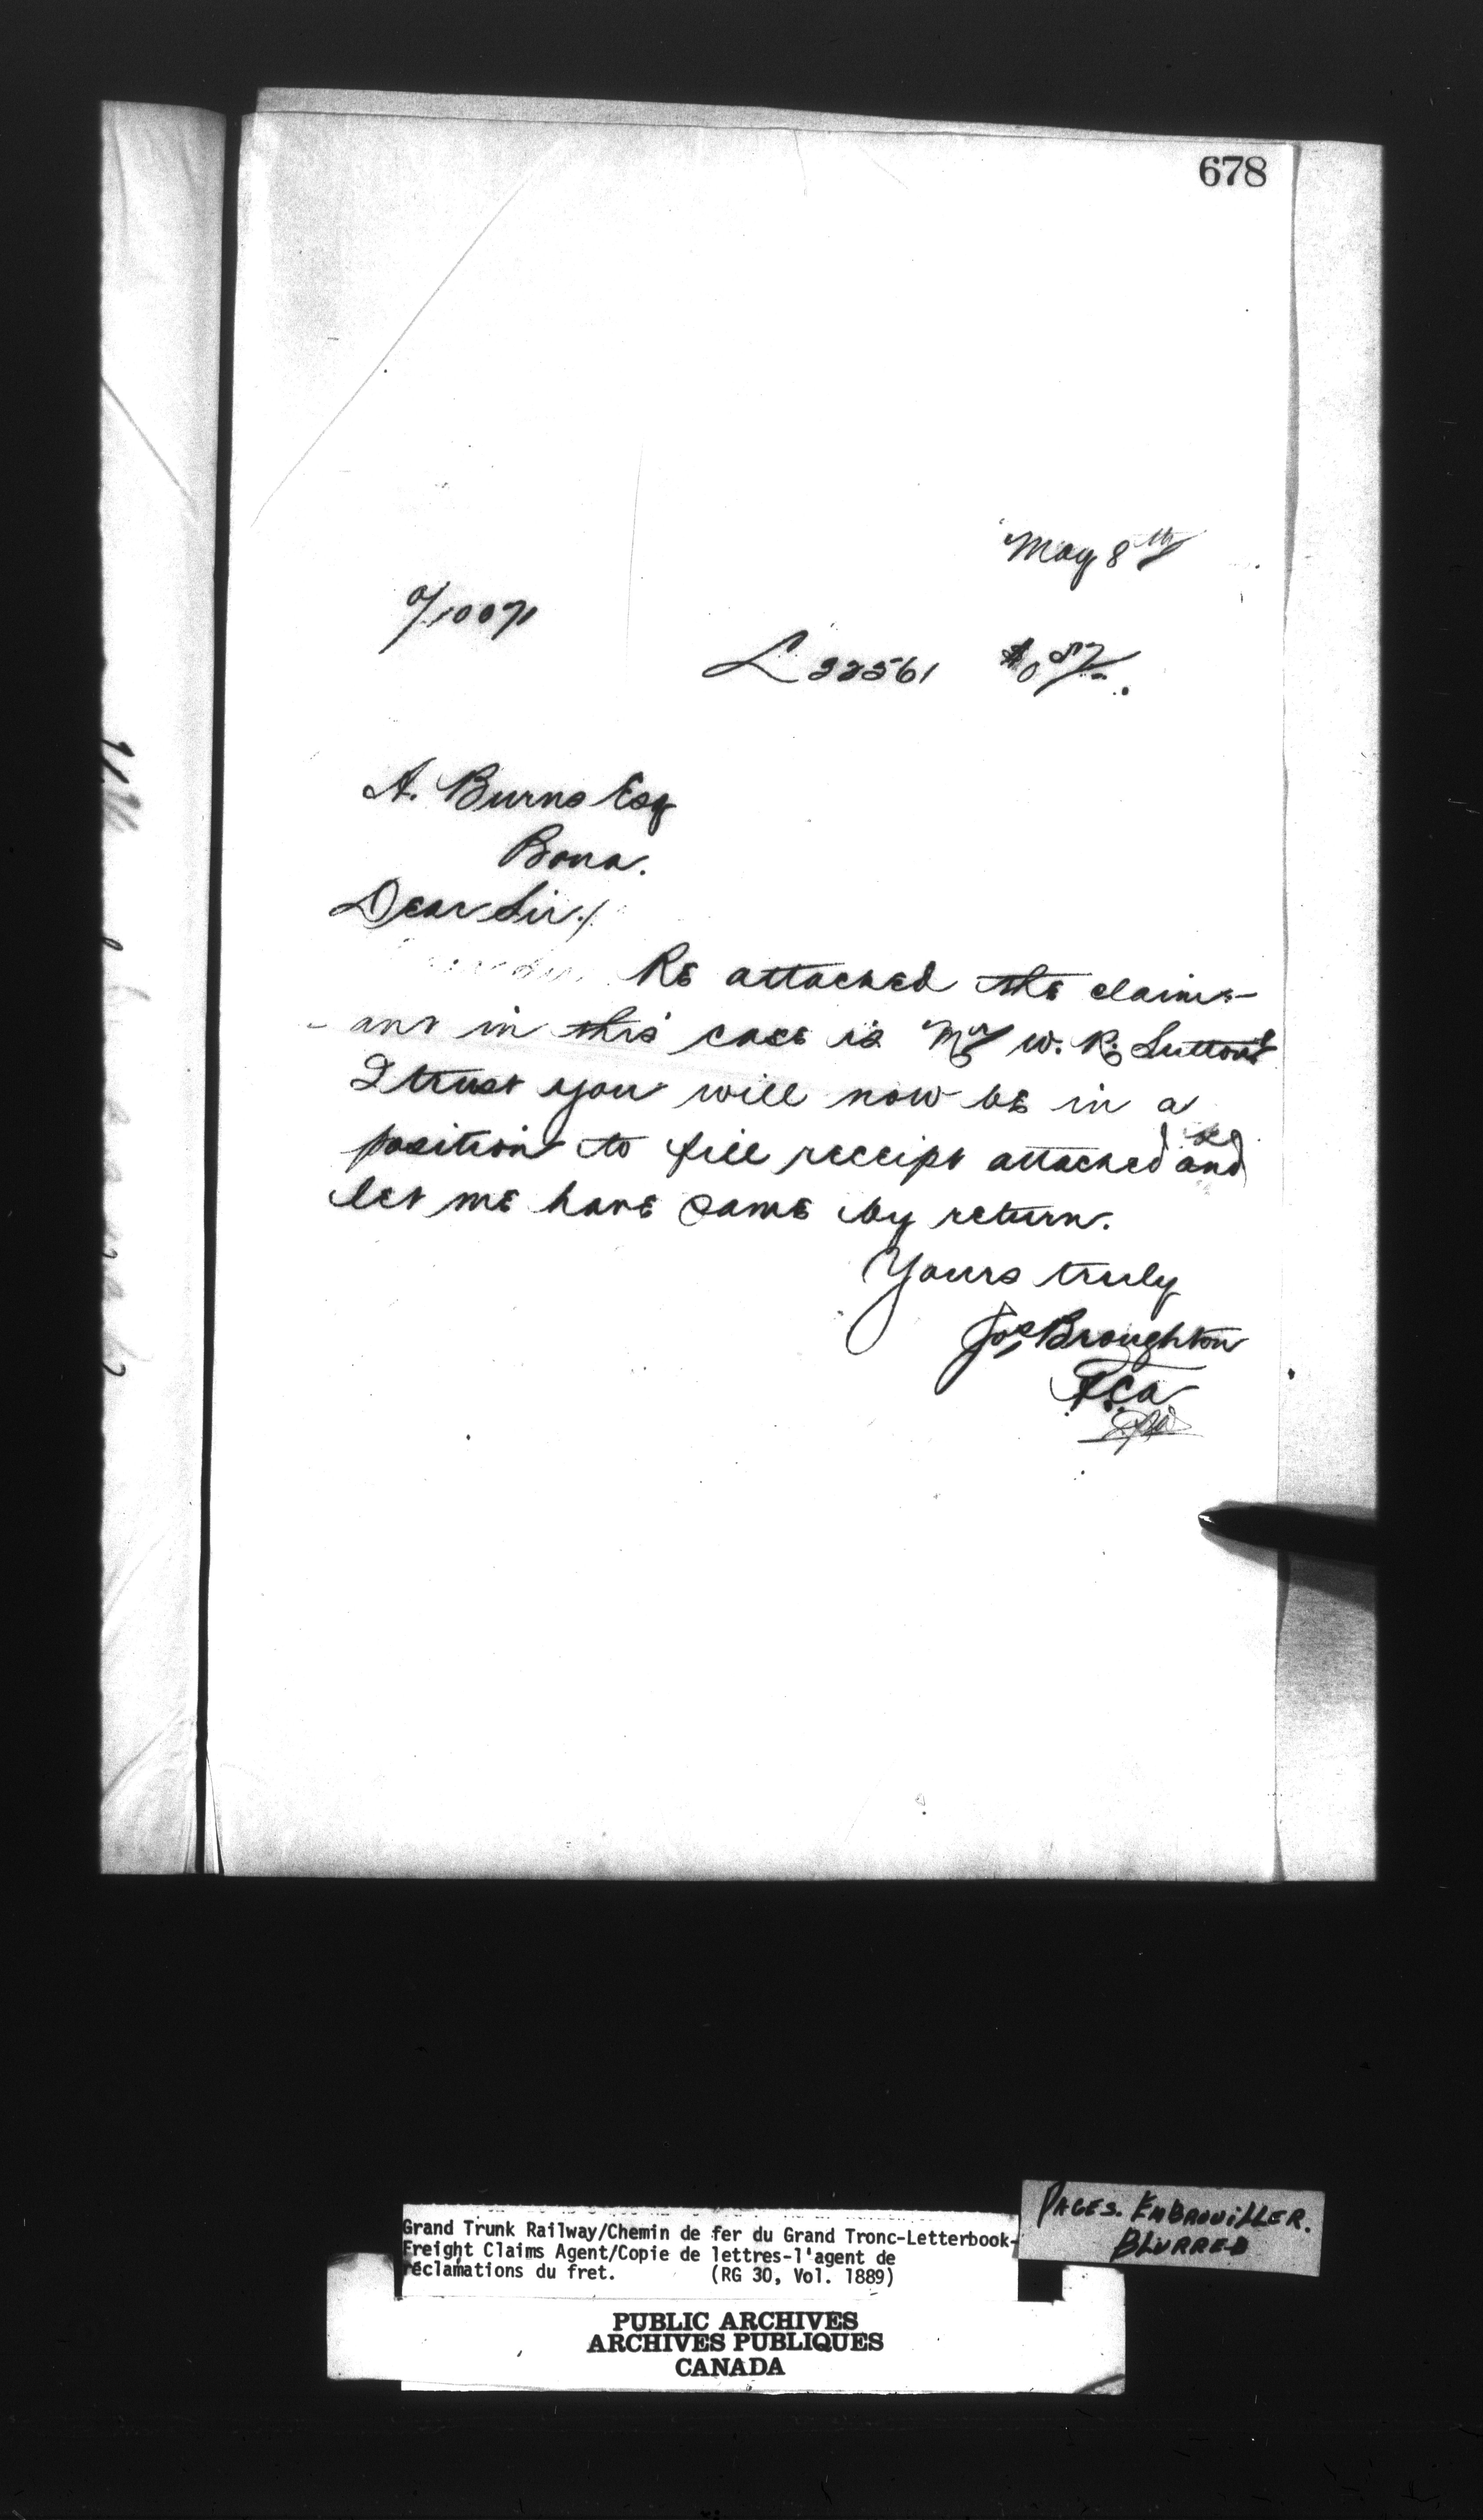 678
May 8th
A. Burns Esq
Bona.
Dear Sir./
Re attached the claim-
- ant in this case is Mr W. R. Sutton
I trust you will now be in a
position to fill receipt attached and
let me have same by return.
Yours truly
Jos Broughton
F.C.A
Grand Trunk Railway/Chemin de fer du Grand Tronc-Letterbook-
Freight Claims Agent/Copie de lettres-l'agent de
réclamations du fret. (RG 30, Vol. 1889)
PAGES. EMBROUILLER.
BLURRED
PUBLIC ARCHIVES
ARCHIVES PUBLIQUES
CANADA